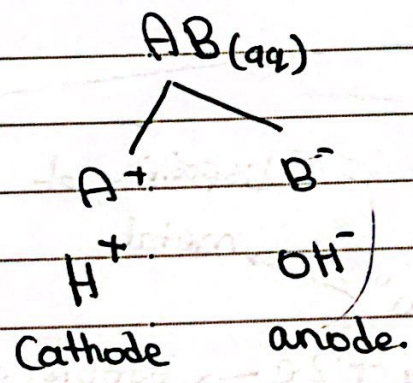 AB(aq)
A⁺ B⁻
H⁺ OH⁻
Cathode anode.